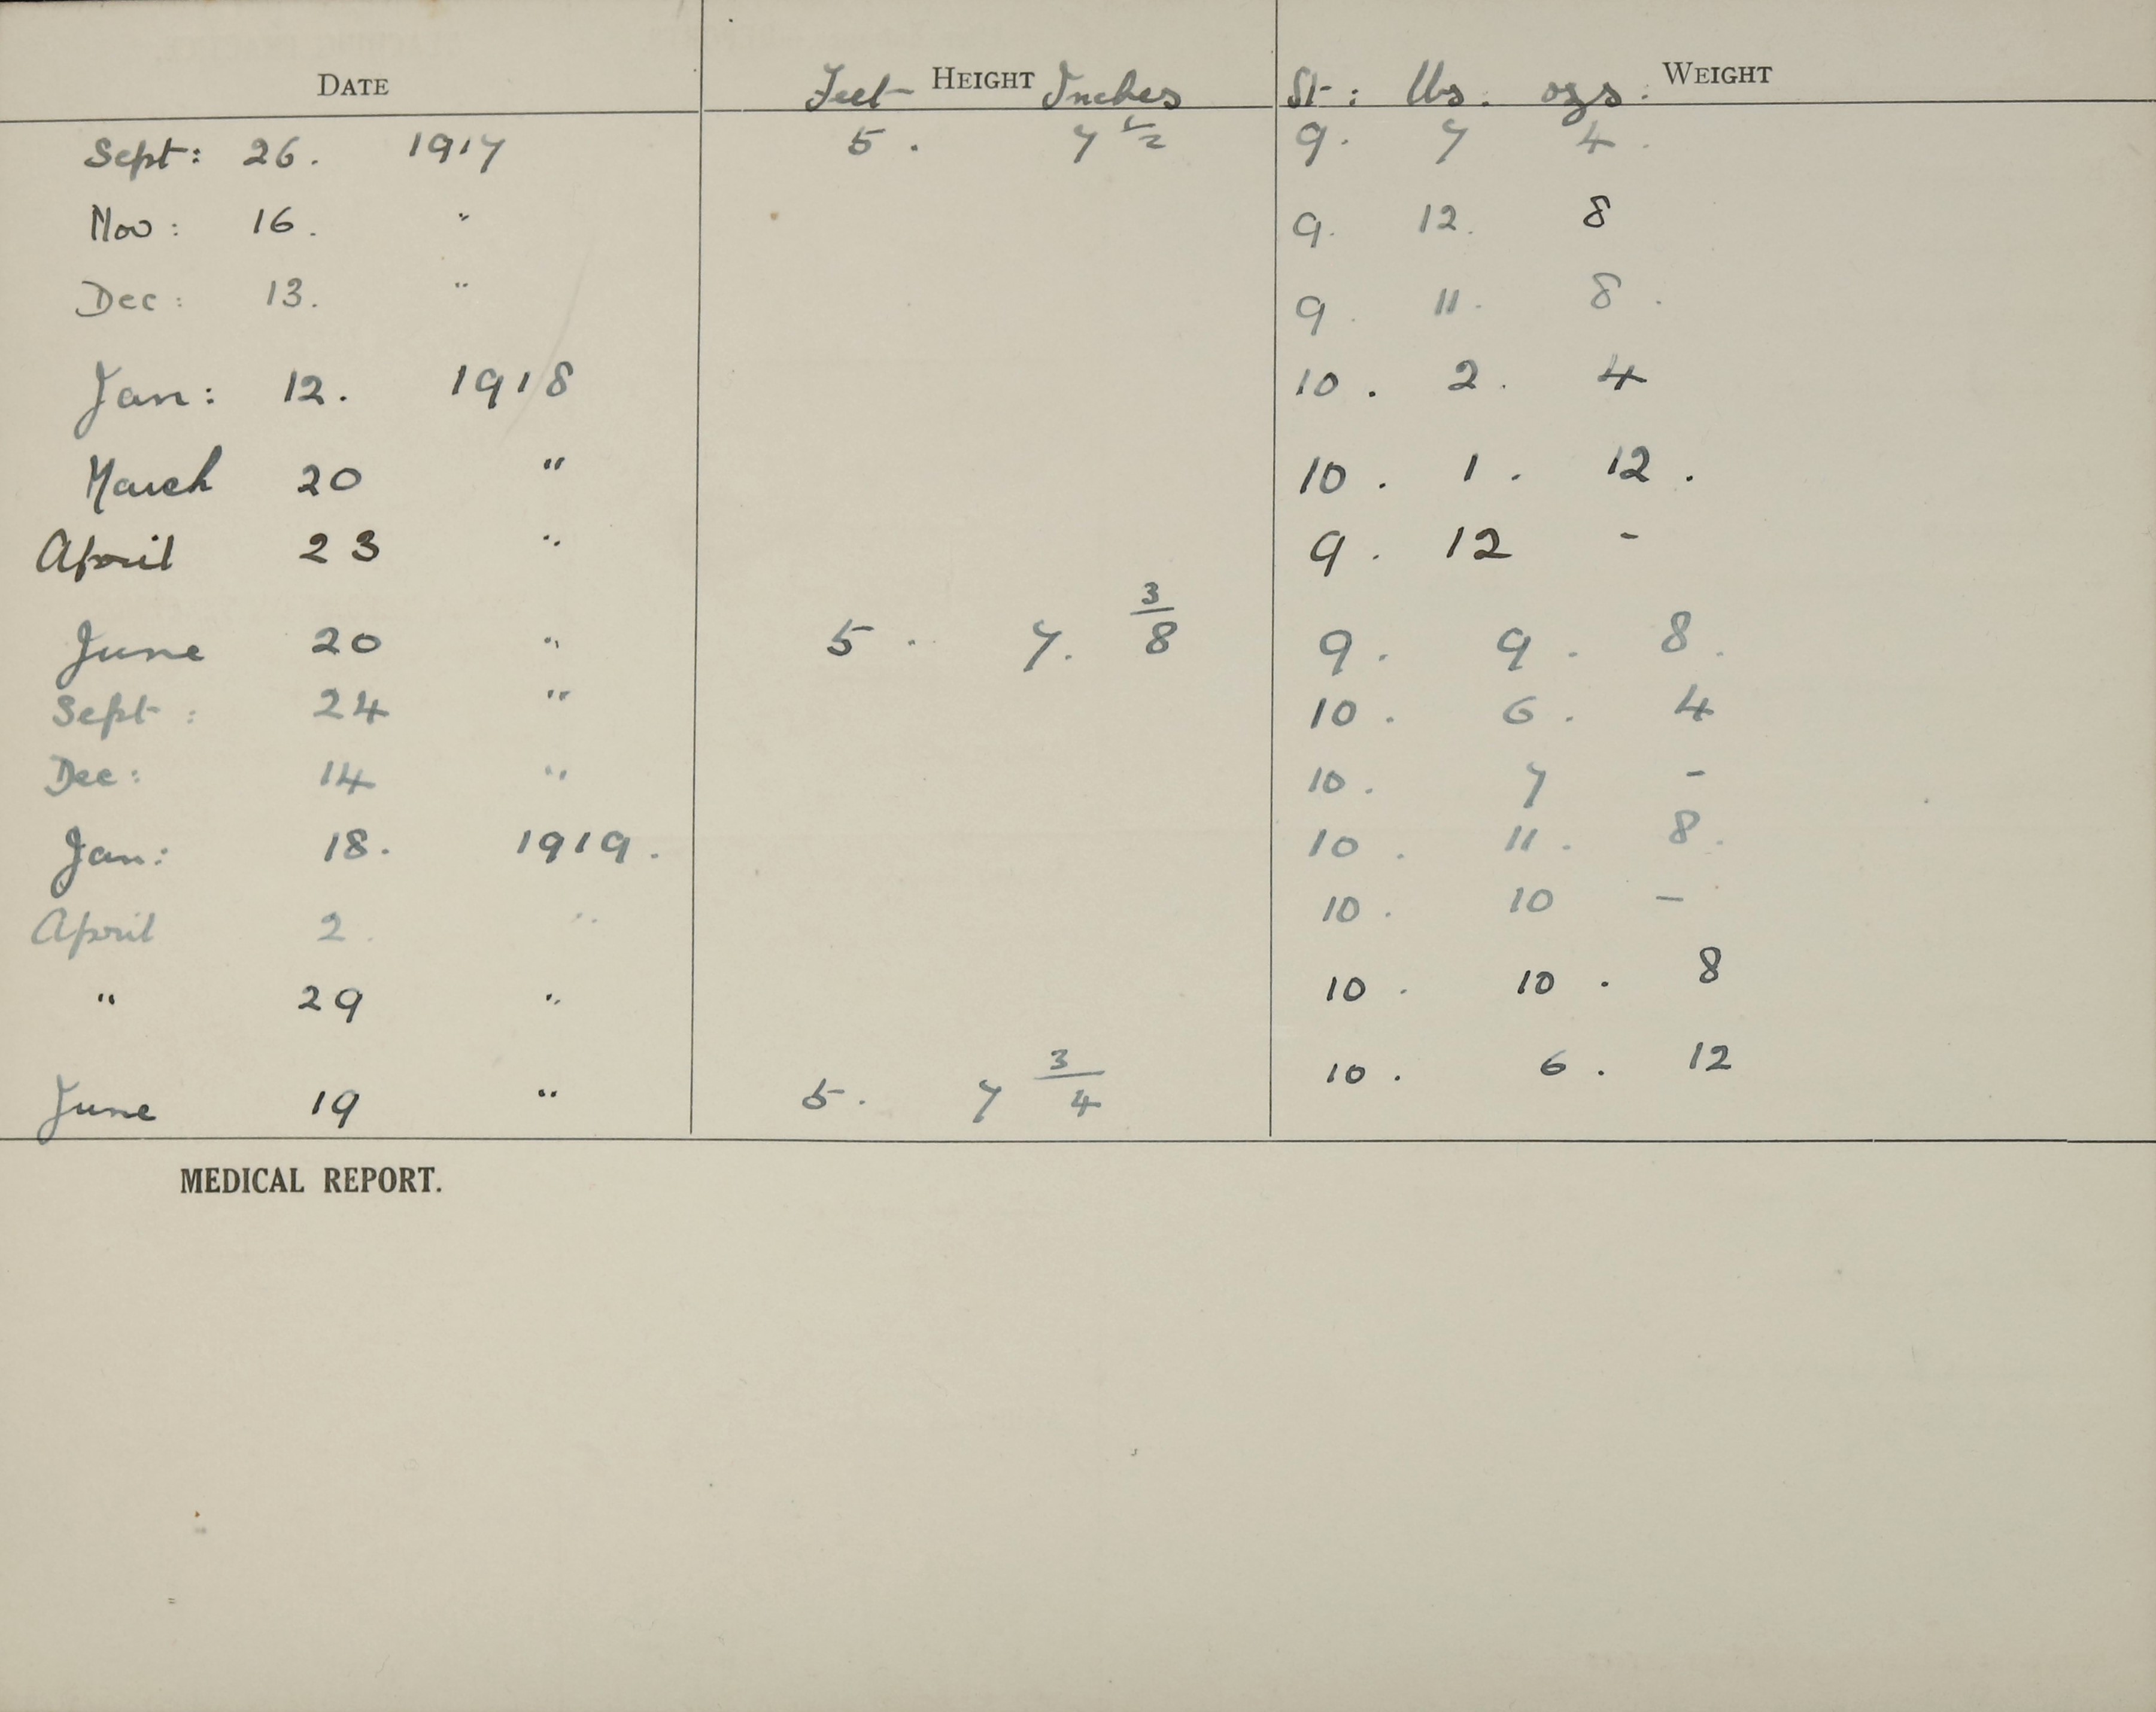 DATE Feet HEIGHT Inches St: lbs. ozs. WEIGHT
Sept: 26. 1917 5. 7 1/2 9. 7 4.
Nov: 16. " 9. 12. 8
Dec: 13. " 9. 11. 8.
Jan: 12. 1918 10. 2. 4
March 20 " 10. 1. 12.
April 23 " 9. 12 -
June 20 " 5. 7. 3/8 9. 9. 8.
Sept: 24 " 10. 6. 4
Dec: 14 " 10. 7 -
Jan: 18. 1919. 10. 11. 8.
April 2. " 10. 10 -
" 29 " 10. 10. 8
June 19 " 5. 7 3/4 10. 6. 12
MEDICAL REPORT.